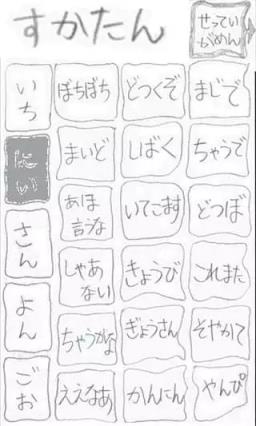 すかたん
せってい
がめん
いち
にい
さん
よん
ごお
ぼちぼち
どつくぞ
まじで
まいど
しばく
ちゃうで
あほ
言うな
いてこます
どつぼ
しゃあ
ない
きょうび
これまた
ちゃうかな
ぎょうさん
そやかて
ええなあ
かんにん
やんぴ